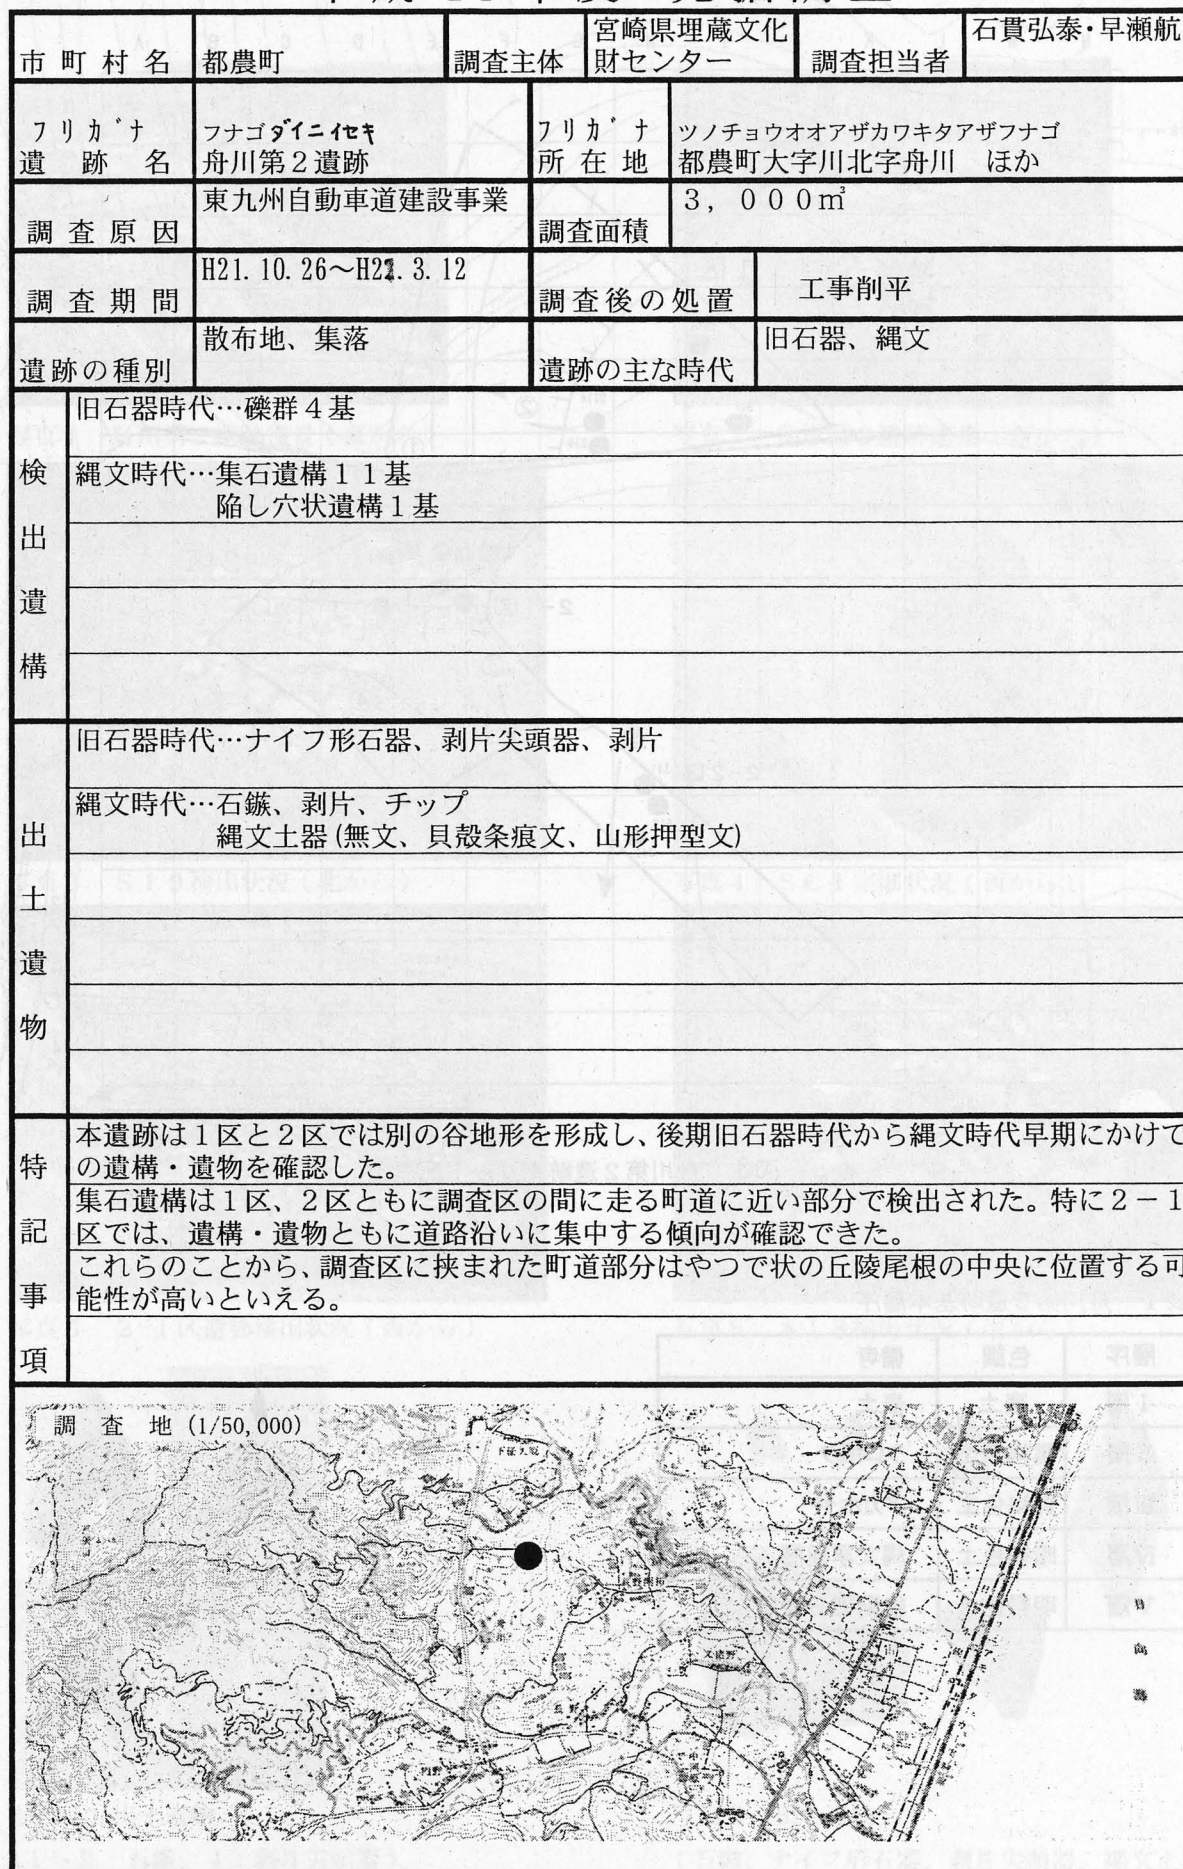 市町村名 都農町 調査主体 宮崎県埋蔵文化財センター 調査担当者 石貫弘泰・早瀬航
フリガナ フナゴダイニイセキ フリガナ ツノチョウオオアザカワキタアザフナゴ
遺跡名 舟川第2遺跡 所在地 都農町大字川北字舟川 ほか
調査原因 東九州自動車道建設事業 調査面積 3,000㎡
調査期間 H21.10.26～H22.3.12 調査後の処置 工事削平
遺跡の種別 散布地、集落 遺跡の主な時代 旧石器、縄文
検出遺構
旧石器時代…礫群4基
縄文時代…集石遺構11基
陥し穴状遺構1基
出土遺物
旧石器時代…ナイフ形石器、剥片尖頭器、剥片
縄文時代…石鏃、剥片、チップ
縄文土器(無文、貝殻条痕文、山形押型文)
特記事項
本遺跡は1区と2区では別の谷地形を形成し、後期旧石器時代から縄文時代早期にかけて
の遺構・遺物を確認した。
集石遺構は1区、2区ともに調査区の間に走る町道に近い部分で検出された。特に2－1
区では、遺構・遺物ともに道路沿いに集中する傾向が確認できた。
これらのことから、調査区に挟まれた町道部分はやつで状の丘陵尾根の中央に位置する可
能性が高いといえる。
調査地(1/50,000)